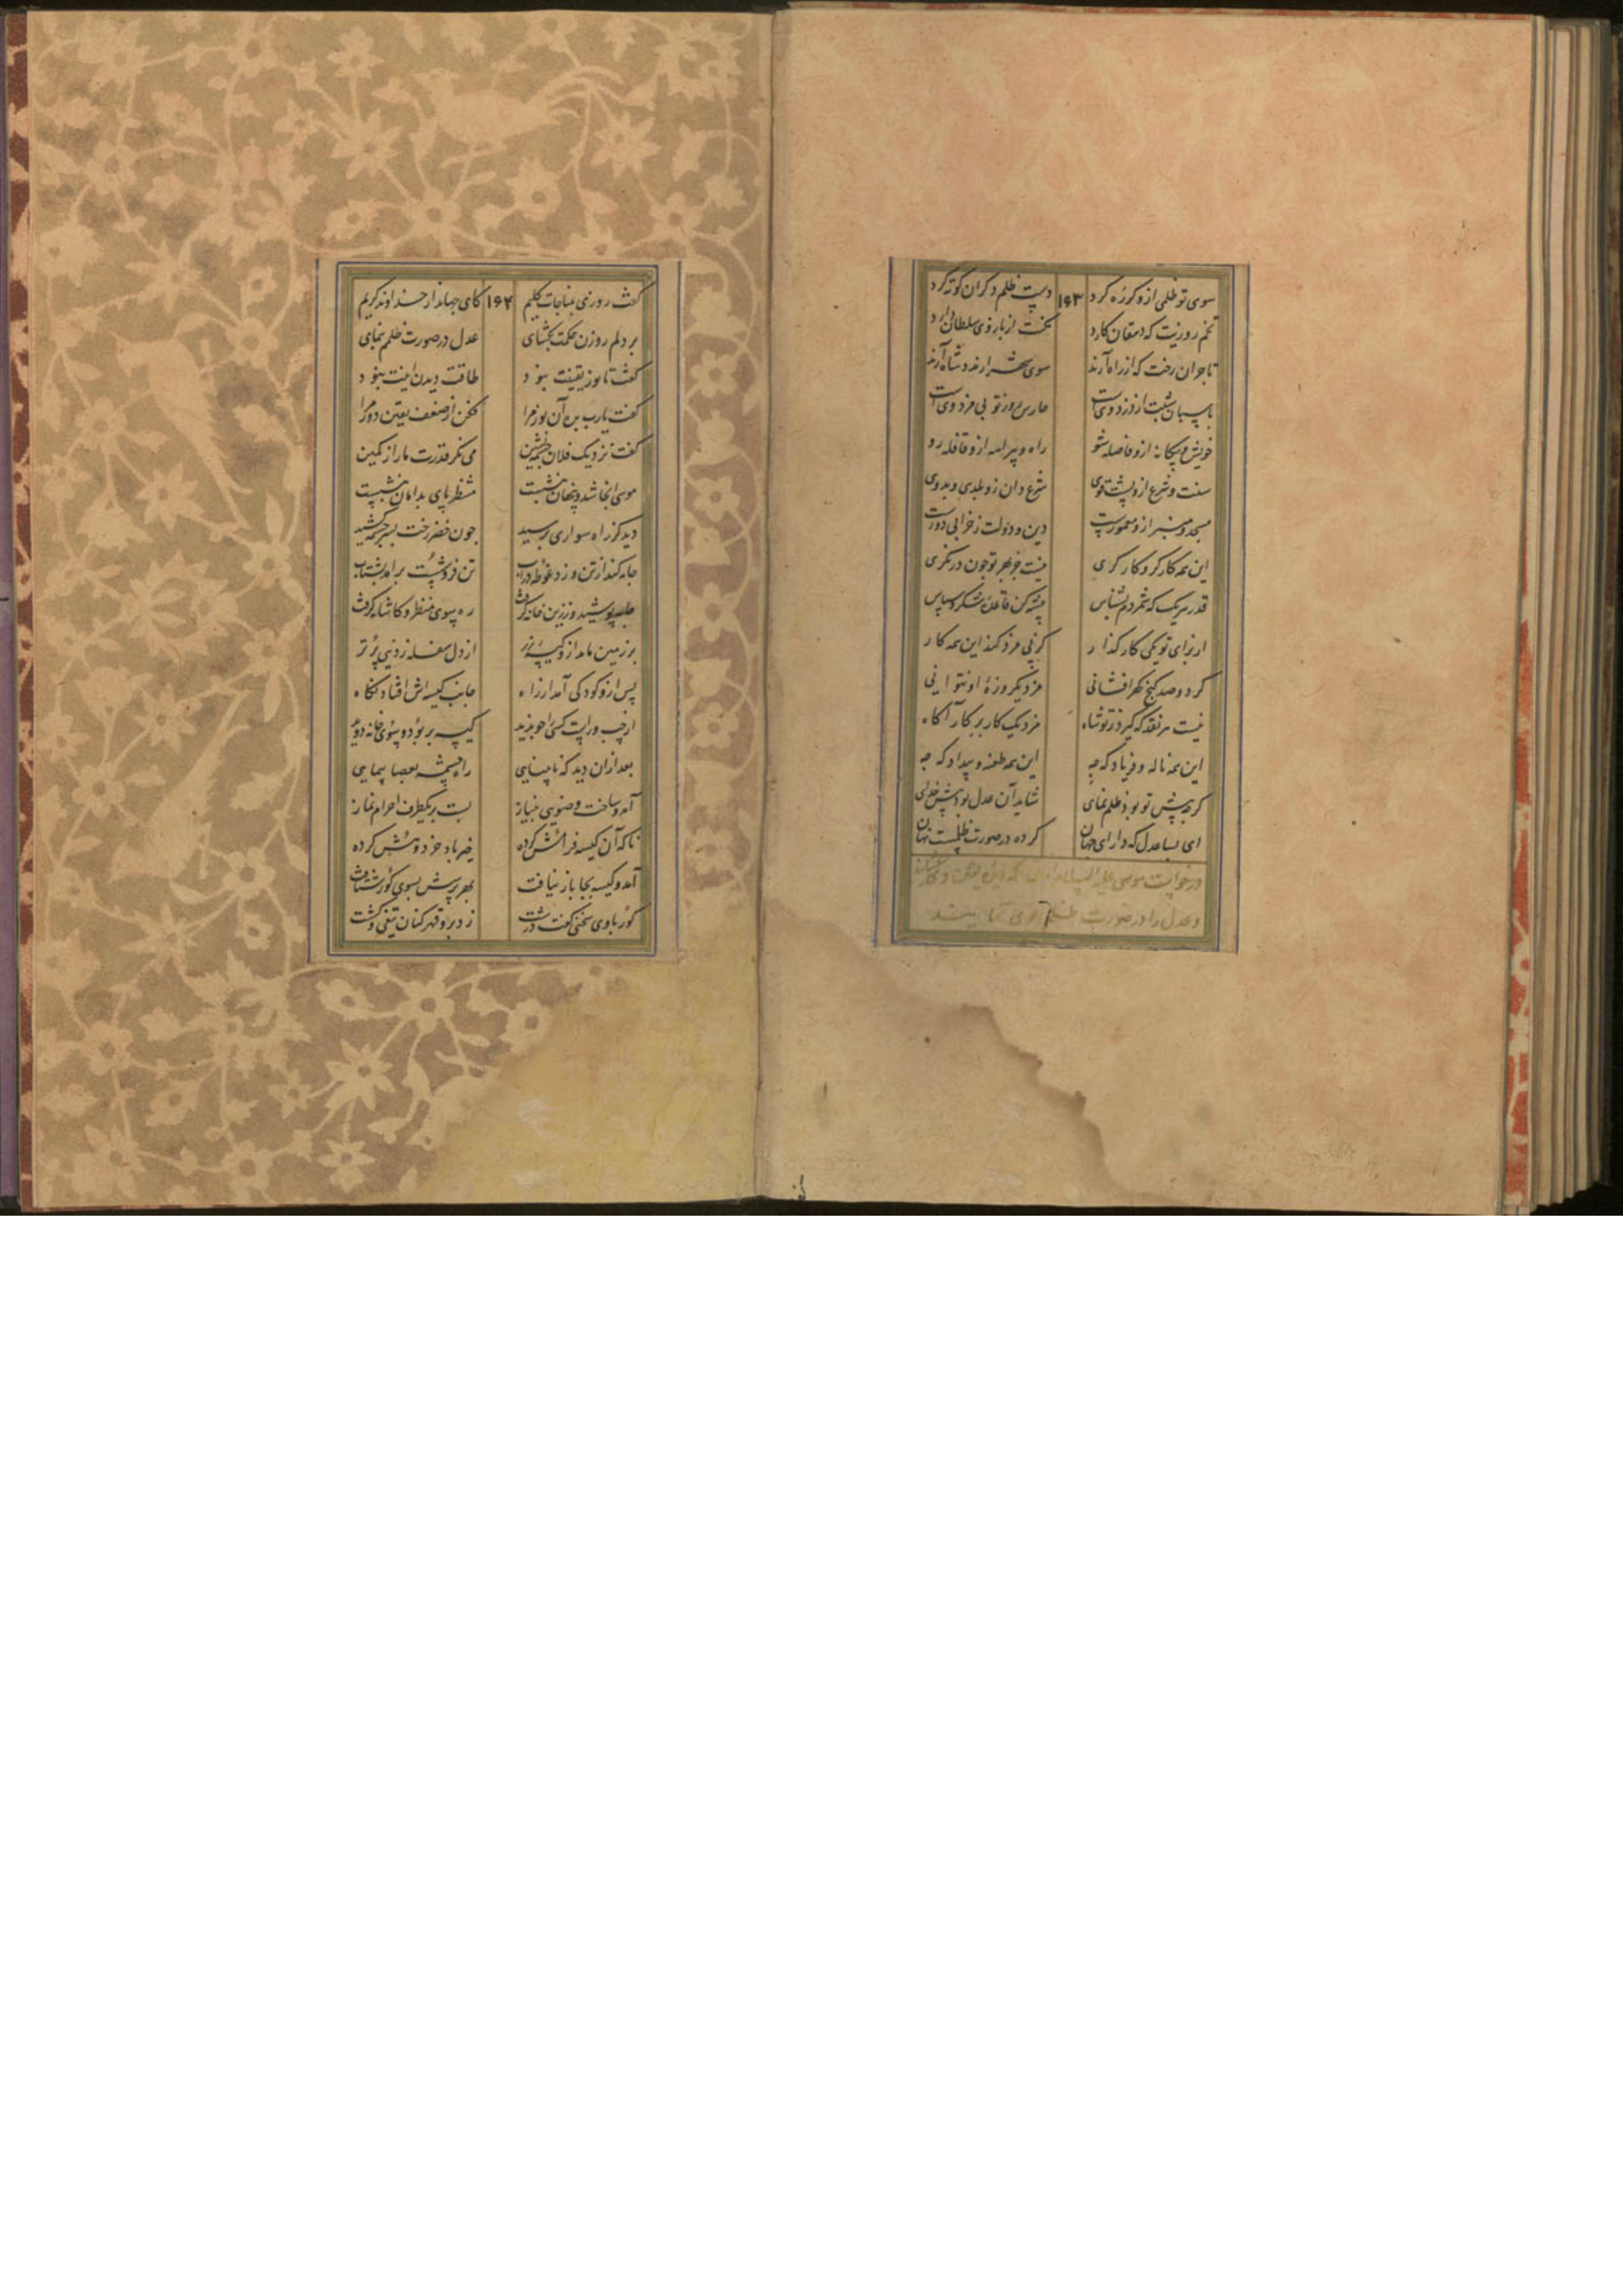 سوی تو ظلمی ازو کر ره کرد دست ظلم دکران کوته کرد
۱۶۳
تخم روزیت که دهقان کارد سخت از بازوی سلطان دارد
تاجران رخت که از راه آرند سوی شهر ارند و شاه آرند
پاسبان شبت از دزد وی است حارس روز تو بی مزد وی است
خویش و بیکانه ازو فاصله شو راه و بیراهه ازو قافله رو
سنت و شرع ازو پشت قوی شرع دان زو بلدی و بدوی
مسجد و منبر ازو معمورست دین و دولت ز خرابی دورست
این همه کارکر و کارکری نیست جز بهر تو چون درنکری
قدر هریک که شمردم بشناس پیشه کن قاعده شکر و سپاس
از برای تو یکی کارکذار کر نه بی مزد کند این همه کار
کرد و صد کنج کهر افشانی مزد یکروزه او نتوانی
نیست هر نقد که کیرد ز تو شاه مزد یک کار بر کارآکاه
این همه ناله و فریاد که چه این همه طعنه و بیداد که چه
کرچه پیش تو بود ظلم نمای شاید آن عدل بود پیش خدای
ای بسا عدل که دارای جهان کرده در صورت ظلمست نهان
درخواست موسی علیه السلام
و عدل را در صورت ظلم
گفت روزی بمناجات کلیم کای جهاندار خداوند کریم
۱۶۴
بر دلم روزن حکمت بکشای عدل در صورت ظلمم بنمای
گفت تا نور یقینت نبود طاقت دیدن اینت نبود
گفت یارب بده آن نور مرا مفکن از ضعف یقین دور مرا
گفت نزدیک فلان چشمه نشین می نکر قدرت ما را ز کمین
موسی آنجا شد و پنهان بنشست منتظر پای بدامان بنشست
دید کز راه سواری برسید چون خضر رخت بسرچشمه کشید
جامه کند از تن و زد غوطه در آب تن فروشست و برآمد بشتاب
جامه پوشید و ز زین خانه گرفت ره بسوی منظر و کاشانه گرفت
بر زمین ماند ازو کیسه زر از دل سفله ز دنیی پرتر
پس ازو کودکی آمد از راه جانب کیسه اش افتاد نکاه
از چپ و راست کسی را چو ندید کیسه بربود و سوی خانه دوید
بعد ازان دید که نابینایی راه چشمه بعصا پیمایی
آمد و ساخت وضویی بنیاز بست بر یکطرف احرام نماز
ناکه آن کیسه فرامش کرده خیرباد خرد و هش کرده
آمد و کیسه بجا باز نیافت بهر پرسش بسوی کور شتافت
کور با وی سخنی گفت درشت زد برو قهرکنان تیغی و کشت